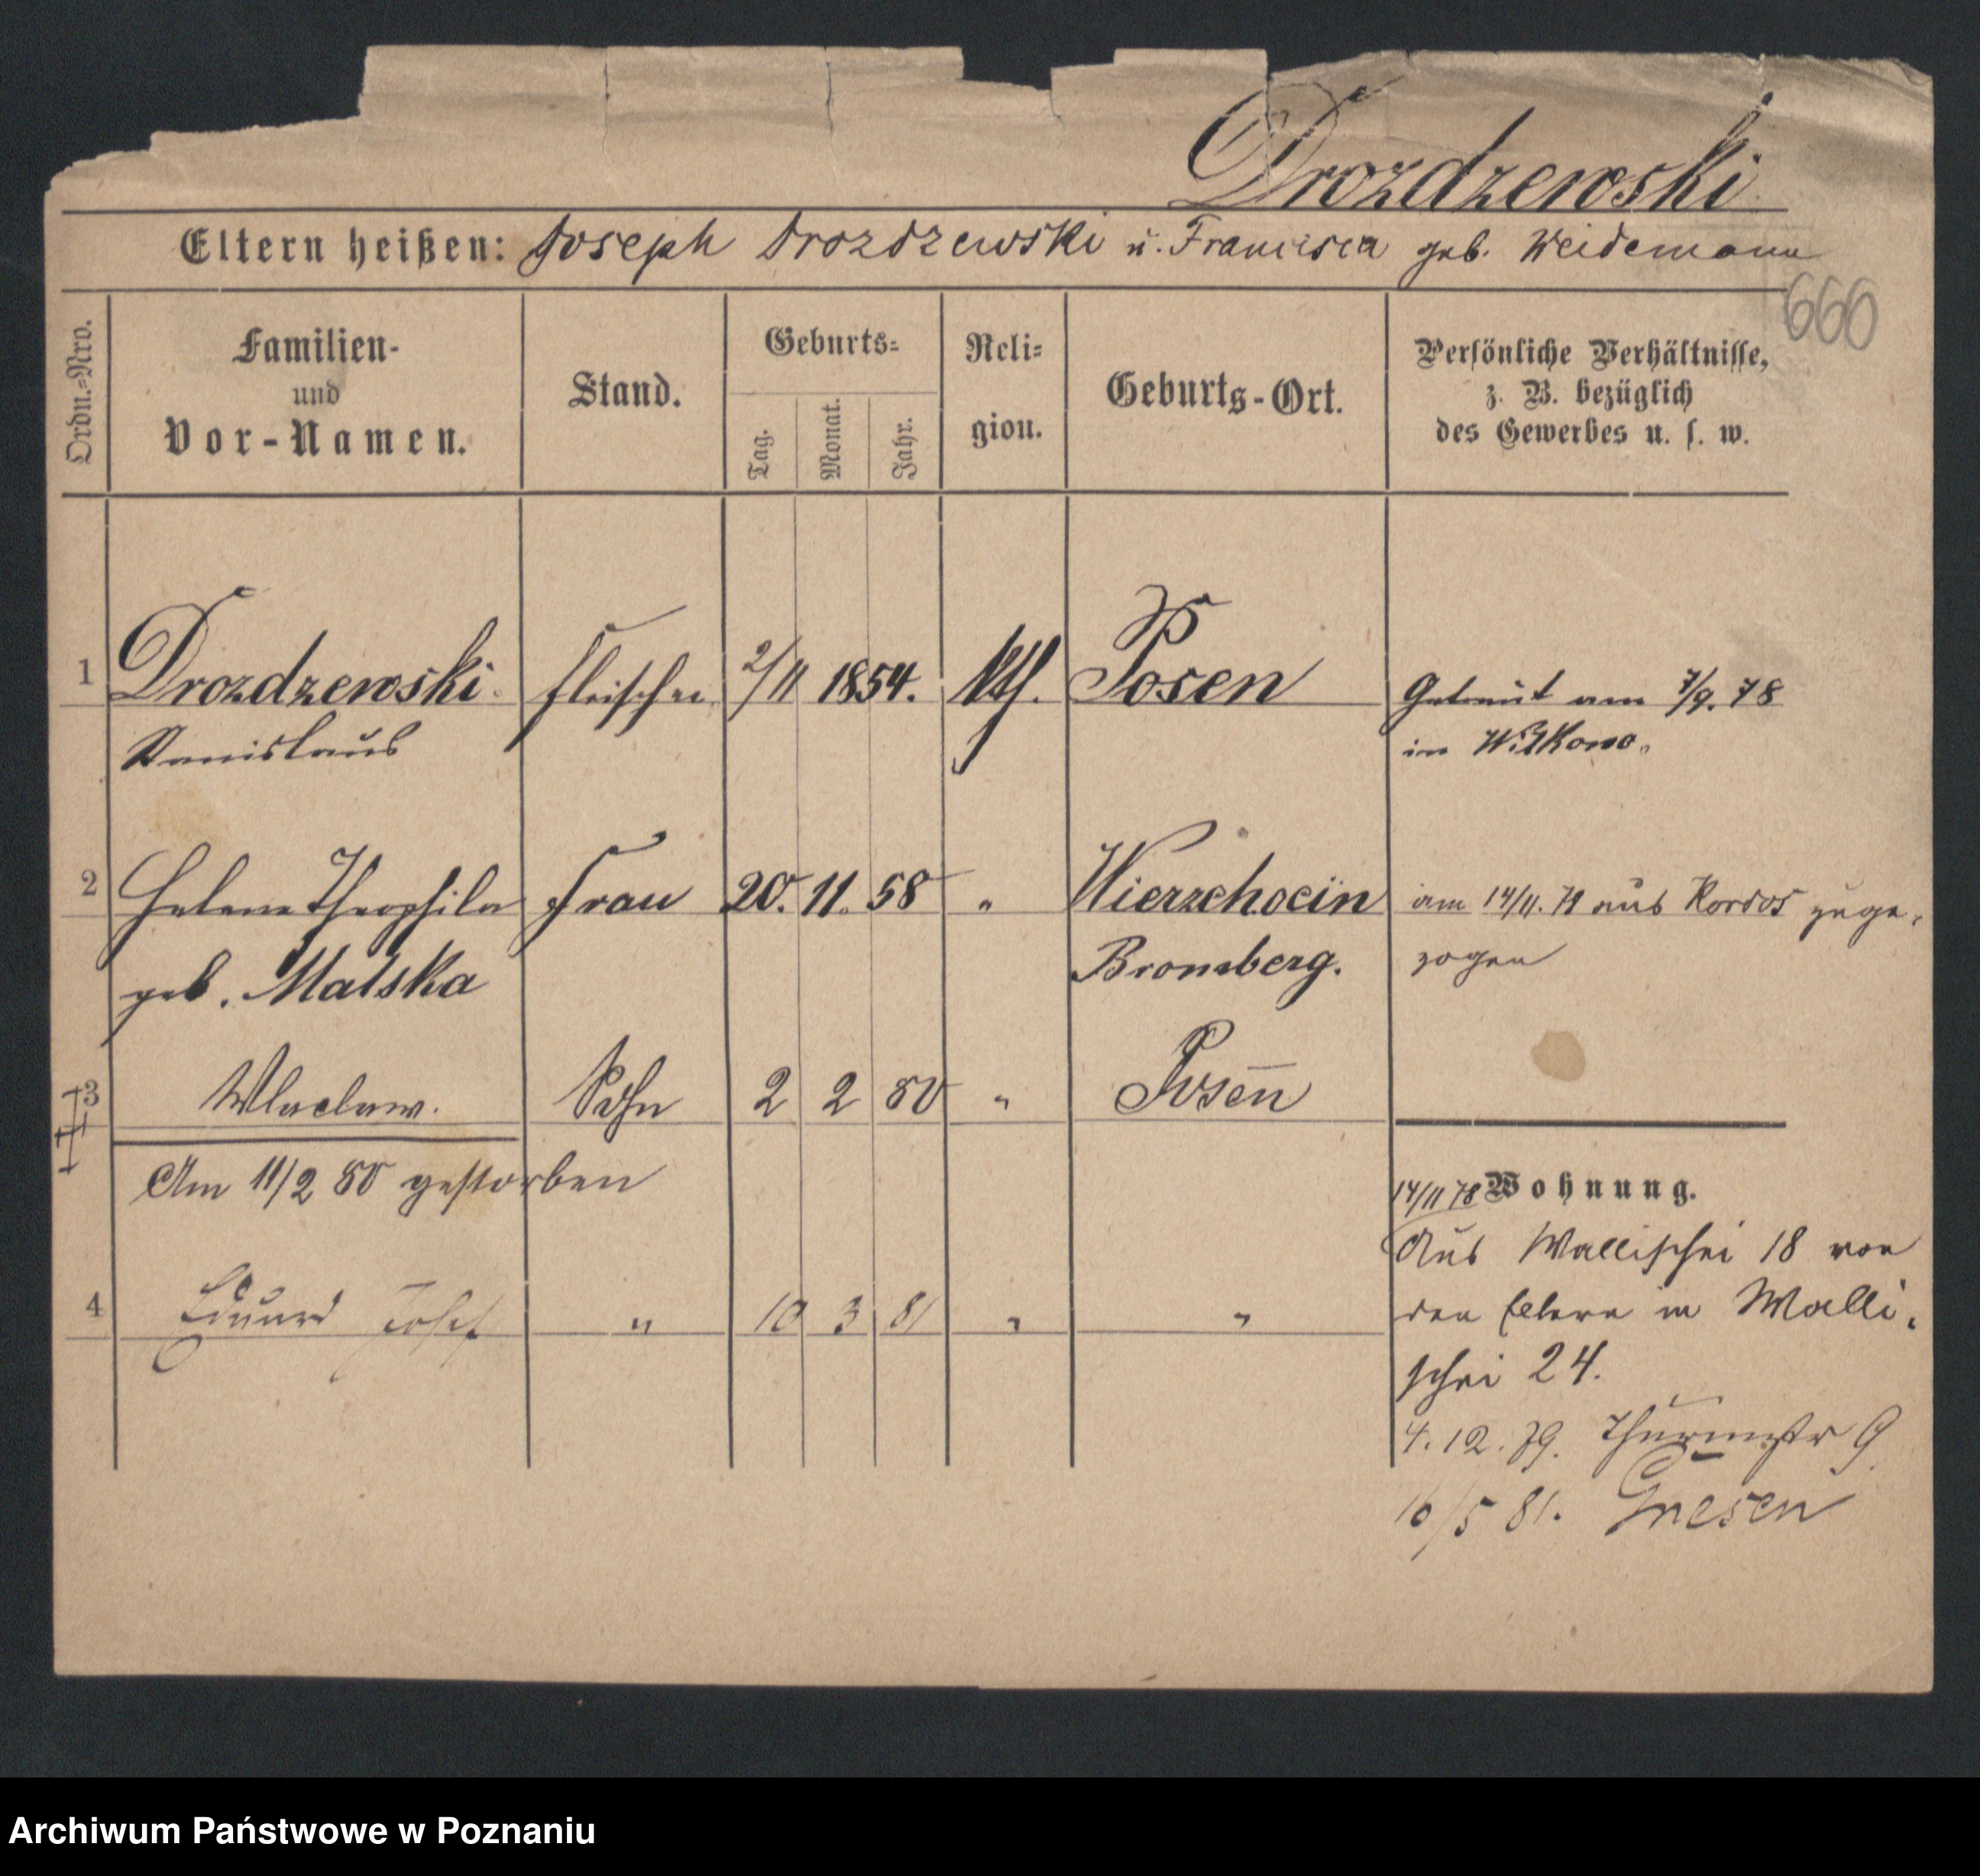 Drozdzewski
Eltern heißen: Joseph Drozdzewski u. Francisca geb. Weidemann
666
Ordn.=Nro.
Familien-
und
Vor-Namen.
Stand.
Geburts=
Tag.
Monat.
Jahr.
Reli=
gion.
Geburts-Ort.
Persönliche Verhältnisse,
z. B. bezüglich
des Gewerbes u. s. w.
1 Drozdzewski Fleischer 2/11 1854. kth. Posen Getraut am 7/9. 78
Stanislaus in Witkowo.
2 Helena Theophila Frau 20. 11. 58 " Wierzchocin am 14/11. 78 aus zuge-
geb. Malska Bromberg. zogen
3 Wlaclaw. Sohn 2 2 80 " Posen
Am 11/2 80 gestorben
14/11 78 Wohnung.
Aus Wallischei 18 von
den Eltern in Walli-
schei 24.
4 Eduard Josef " 10 3 81 " "
4. 12. 79. Thurmstr 9
16/5 81. Gnesen
Archiwum Państwowe w Poznaniu